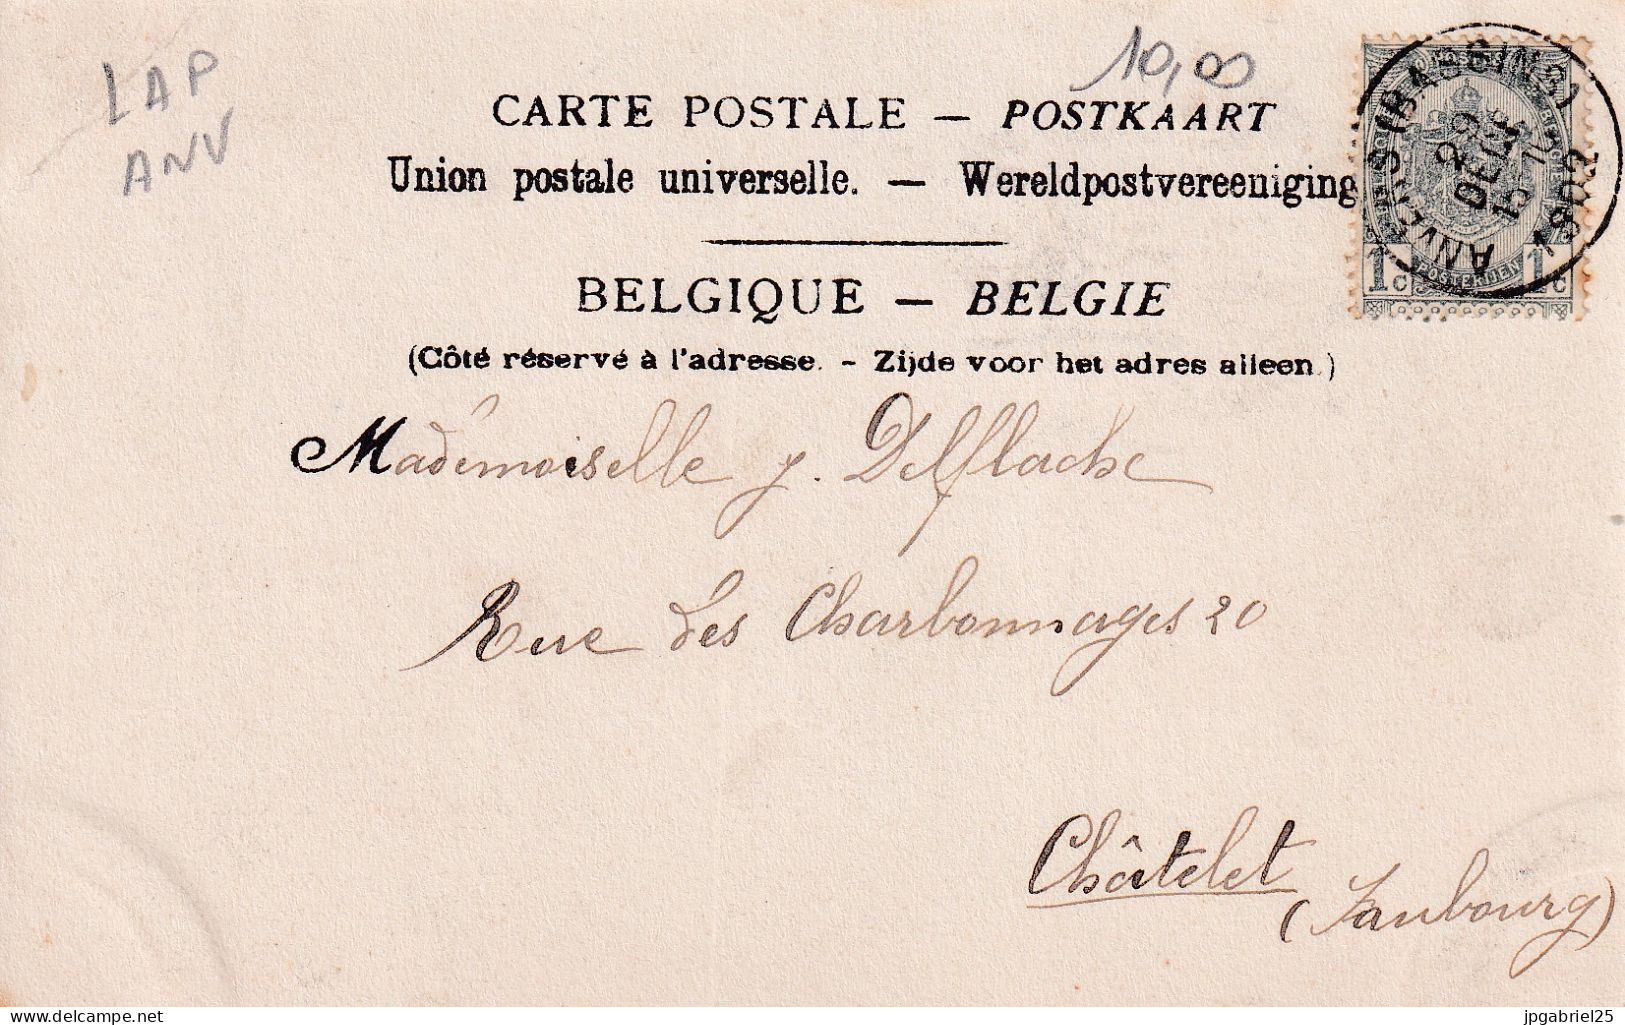 LAP
ANV
10,00
CARTE POSTALE — POSTKAART
Union postale universelle. — Wereldpostvereeniging
BELGIQUE — BELGIE
(Côté réservé à l'adresse. - Zijde voor het adres alleen.)
ANVERS (BASSINS)
29
DEC
1902
POSTERIJEN
1c 1c
Mademoiselle J. Delflache
Rue des Charbonnages 20
Châtelet
(Faubourg)
delcampe.net
jpgabriel25